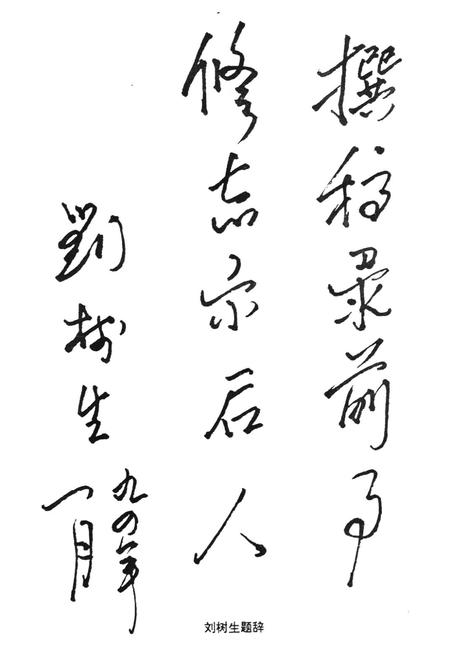 撰稿录前事
修志示后人
劉树生
九四年
一月
刘树生题辞